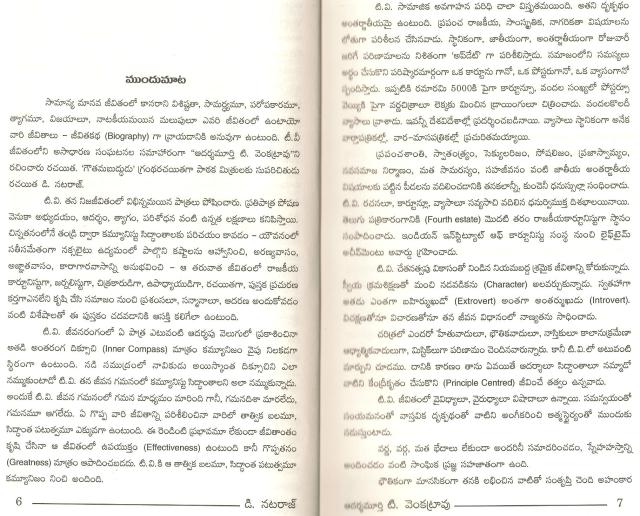 ముందుమాట
సామాన్య మానవ జీవితంలో కానరాని విశిష్టతా, సామర్థ్యమూ, పరోపకారమూ,
త్యాగమూ, విజయాలూ, నాటకీయమయిన మలుపులూ ఎవరి జీవితంలో ఉంటాయో
వారి జీవితాలు – జీవితకథ (Biography) గా వ్రాయడానికి అనువుగా ఉంటుంది. టి.వీ
జీవితంలోని అసాధారణ సంఘటనల సమాహారంగా "ఆదర్శమూర్తి టి. వెంకట్రావు"ని
రచించారు రచయిత. 'గౌతమబుద్ధుడు' గ్రంథరచయితగా పాఠక మిత్రులకు సుపరిచితుడు
రచయిత డి. నటరాజ్.
టి.వి. తన నిజజీవితంలో విభిన్నమయిన పాత్రలు పోషించారు. ప్రతిపాత్ర పోషణ
వెనుకా అభ్యుదయం, ఆదర్శం, త్యాగం, పరిశోధన వంటి ఉన్నత లక్షణాలు కనిపిస్తాయి.
చిన్నతనంలోనే తండ్రి ద్వారా కమ్యూనిస్టు సిద్ధాంతాలకు పరిచయం కావడం – యౌవనంలో
సతీసమేతంగా నక్సలైటు ఉద్యమంలో పాల్గొని కష్టాలను ఆహ్వానించి, అరణ్యవాసం,
అజ్ఞాతవాసం, కారాగారవాసాన్ని అనుభవించి – ఆ తరువాత జీవితంలో రాజకీయ
కార్టూనిస్టుగా, జర్నలిస్టుగా, చిత్రకారుడిగా, ఉపాధ్యాయుడిగా, రచయితగా, పుస్తక ప్రచురణ
కర్తగా ఎనలేని కృషి చేసి సమాజం నుంచి ప్రశంసలూ, సన్మానాలూ, ఆదరణ అందుకోవడం
వంటి విశేషాలతో ఈ పుస్తకం చదవడానికి ఆసక్తి కలిగేలా ఉంటుంది.
టి.వి. జీవనరంగంలో ఏ పాత్ర ఎటువంటి ఆదర్శపు వెలుగులో ప్రకాశించినా
అతడి అంతరంగ దిక్సూచి (Inner Compass) మాత్రం కమ్యూనిజం వైపు నిలకడగా
స్థిరంగా ఉంటుంది. నడి సముద్రంలో నావికుడు అయిస్కాంత దిక్సూచిని ఎలా
నమ్ముకుంటాడో టి.వి. తన జీవన గమనంలో కమ్యూనిస్టు సిద్ధాంతాలని అలా నమ్ముకున్నాడు.
అందుకే టి.వి. జీవన గమనంలో గమన మాధ్యమం మారింది గానీ, గమనదిశా మారలేదు,
గమనమూ ఆగలేదు. ఏ గొప్ప వారి జీవితాన్ని పరిశీలించినా వారిలో తాత్విక బలమూ,
సిద్ధాంత పటుత్వమూ ఎక్కువగా ఉంటుంది. ఈ రెండింటి ప్రభావమూ లేకుండా జీవితాంతం
కృషి చేసినా ఆ జీవితంలో ఉపయుక్తం (Effectiveness) ఉంటుంది కానీ గొప్పతనం
(Greatness) మాత్రం ఆపాదించబడదు. టి.వి.కి ఆ తాత్విక బలమూ, సిద్ధాంత పటుత్వమూ
కమ్యూనిజం నించి అందింది.
6 డి. నటరాజ్
టి.వి. సామాజిక అవగాహన పరిధి చాలా విస్తృతమయింది. అతని దృక్పథం
అంతర్జాతీయమై ఉంటుంది. ప్రపంచ రాజకీయ, సాంస్కృతిక, నాగరికతా విషయాలను
లోతుగా పరిశీలన చేసినవాడు. స్థానికంగా, జాతీయంగా, అంతర్జాతీయంగా రోజువారీ
జరిగే పరిణామాలను నిశితంగా 'అప్‌డేట్' గా పరిశీలిస్తాడు. సమాజంలోని సమస్యలు
అర్థం చేసుకొని పరిష్కారమార్గంగా ఒక కార్టూను గానో, ఒక పోస్టరుగానో, ఒక వ్యాసంగానో
స్పందిస్తాడు. ఇప్పటికి రమారమి 5000కి పైగా కార్టూన్స్, వందల సంఖ్యలో పోస్టర్స్
వెయ్యికి పైగా వర్ణచిత్రాలూ లెక్కకు మించిన డ్రాయింగులూ చిత్రించాడు. వందలకొలదీ
వ్యాసాలు వ్రాశాడు. ఇవన్నీ దేశవిదేశాల్లో ప్రదర్శించబడినాయి. వ్యాసాలు స్థానికంగా అనేక
వార్తాపత్రికల్లో, వార–మాసపత్రికల్లో ప్రచురితమయ్యాయి.
ప్రపంచశాంతి, స్వాతంత్ర్యం, సెక్యులరిజం, సోషలిజం, ప్రజాస్వామ్యం,
నవసమాజ నిర్మాణం, మత సామరస్యం, సహజీవనం వంటి జాతీయ అంతర్జాతీయ
విషయాలకు పట్టిన పీడలను వదిలించడానికి తనకలాన్నీ, కుంచెనీ ధనుస్సుల్లా సంధించాడు.
టి.వి. రచనలూ, కార్టూన్లూ, వ్యాసాలూ సవ్యసాచి వదిలిన ధనుర్విముక్త దిశకాలయినాయి.
తెలుగు పత్రికారంగానికి (Fourth estate) మొదటి తరం రాజకీయకార్టూనిస్టుగా స్థానం
సంపాదించాడు. ఇండియన్ ఇన్‌స్టిట్యూట్ ఆఫ్ కార్టూనిస్టు సంస్థ నుంచి లైఫ్‌టైమ్
అచీవ్‌మెంటు అవార్డు గ్రహించాడు.
టి.వి. చేతనత్వపు వికాసంతో నిండిన నియమబద్ధ శ్రామిక జీవితాన్ని కోరుకున్నాడు.
స్వీయ క్రమశిక్షణతో మంచి నడవడికను (Character) అలవర్చుకున్నాడు. స్వతహాగా
అతడు ఎంతగా బహిర్ముఖుడో (Extrovert) అంతగా అంతర్ముఖుడు (Introvert).
విచక్షణతోనూ విచారణతోనూ తన జీవన విధానంలో నాణ్యతను సాధించాడు.
చరిత్రలో ఎందరో హేతువాదులూ, భౌతికవాదులూ, నాస్తికులూ కాలానుక్రమేణా
ఆధ్యాత్మికవాదులుగా, మిస్టిక్‌లుగా పరిణామం చెందినవారున్నారు. కానీ టి.వి.లో అటువంటి
మార్పుని చూడము. దానికి కారణం తాను ఏయితే ఆదర్శాలూ సిద్ధాంతాలూ నమ్మాడో
వాటిని కేంద్రీకృతం చేసుకొని (Principle Centred) జీవించే తత్వం ఉన్నవాడు.
టి.వి. జీవితంలో వైవిధ్యాలూ, వైరుధ్యాలూ విషాదాలూ ఉన్నాయి. సమన్వయంతో
సంయమనంతో వాస్తవిక దృక్పథంతో వాటిని అంగీకరించి ఆత్మస్థైర్యంతో ముందుకు
నడుస్తుంటాడు.
వర్గ, వర్ణ, మత భేదాలు లేకుండా అందరినీ సమాదరించడం, స్నేహహస్తాన్ని
అందించడం వంటి సాంఘిక ప్రజ్ఞ సహజాతంగా ఉంది.
భౌతికంగా మానసికంగా తనకి లభించిన వాటితో సంతృప్తి చెంది అహంకార
ఆదర్శమూర్తి టి. వెంకట్రావు 7